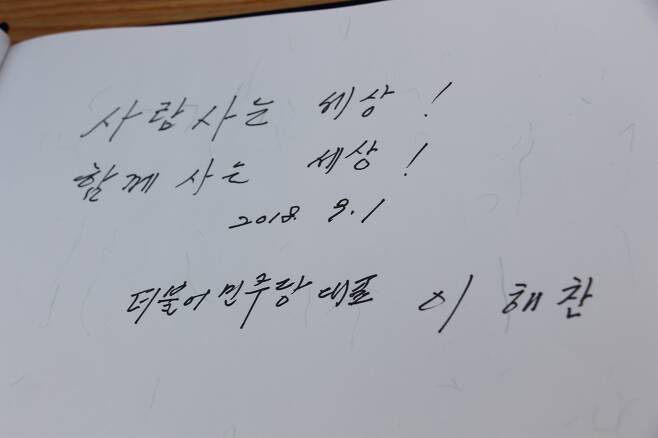 사람사는 세상!
함께 사는 세상!
2018. 9. 1
더불어민주당대표 이해찬